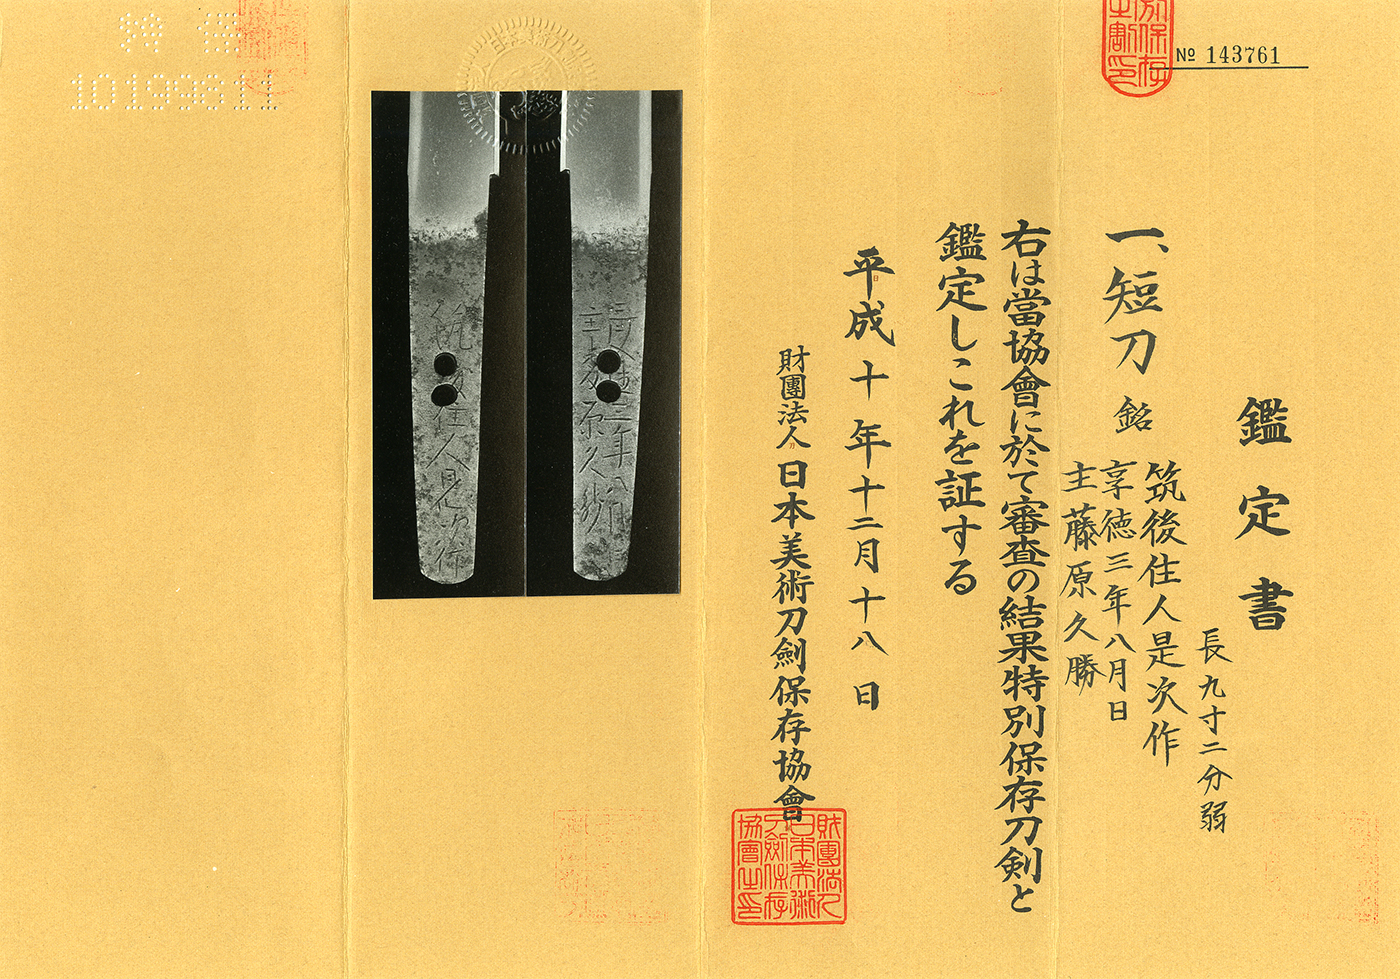 № 143761
鑑定書
長九寸二分弱
一、短刀 銘
筑後住人是次作
享徳三年八月日
主藤原久勝
右は當協會に於て審査の結果特別保存刀剣と
鑑定しこれを証する
平成十年十二月十八日
財團法人日本美術刀劍保存協會
財團法人
日本美術
刀劍保存
協會之印
10199611